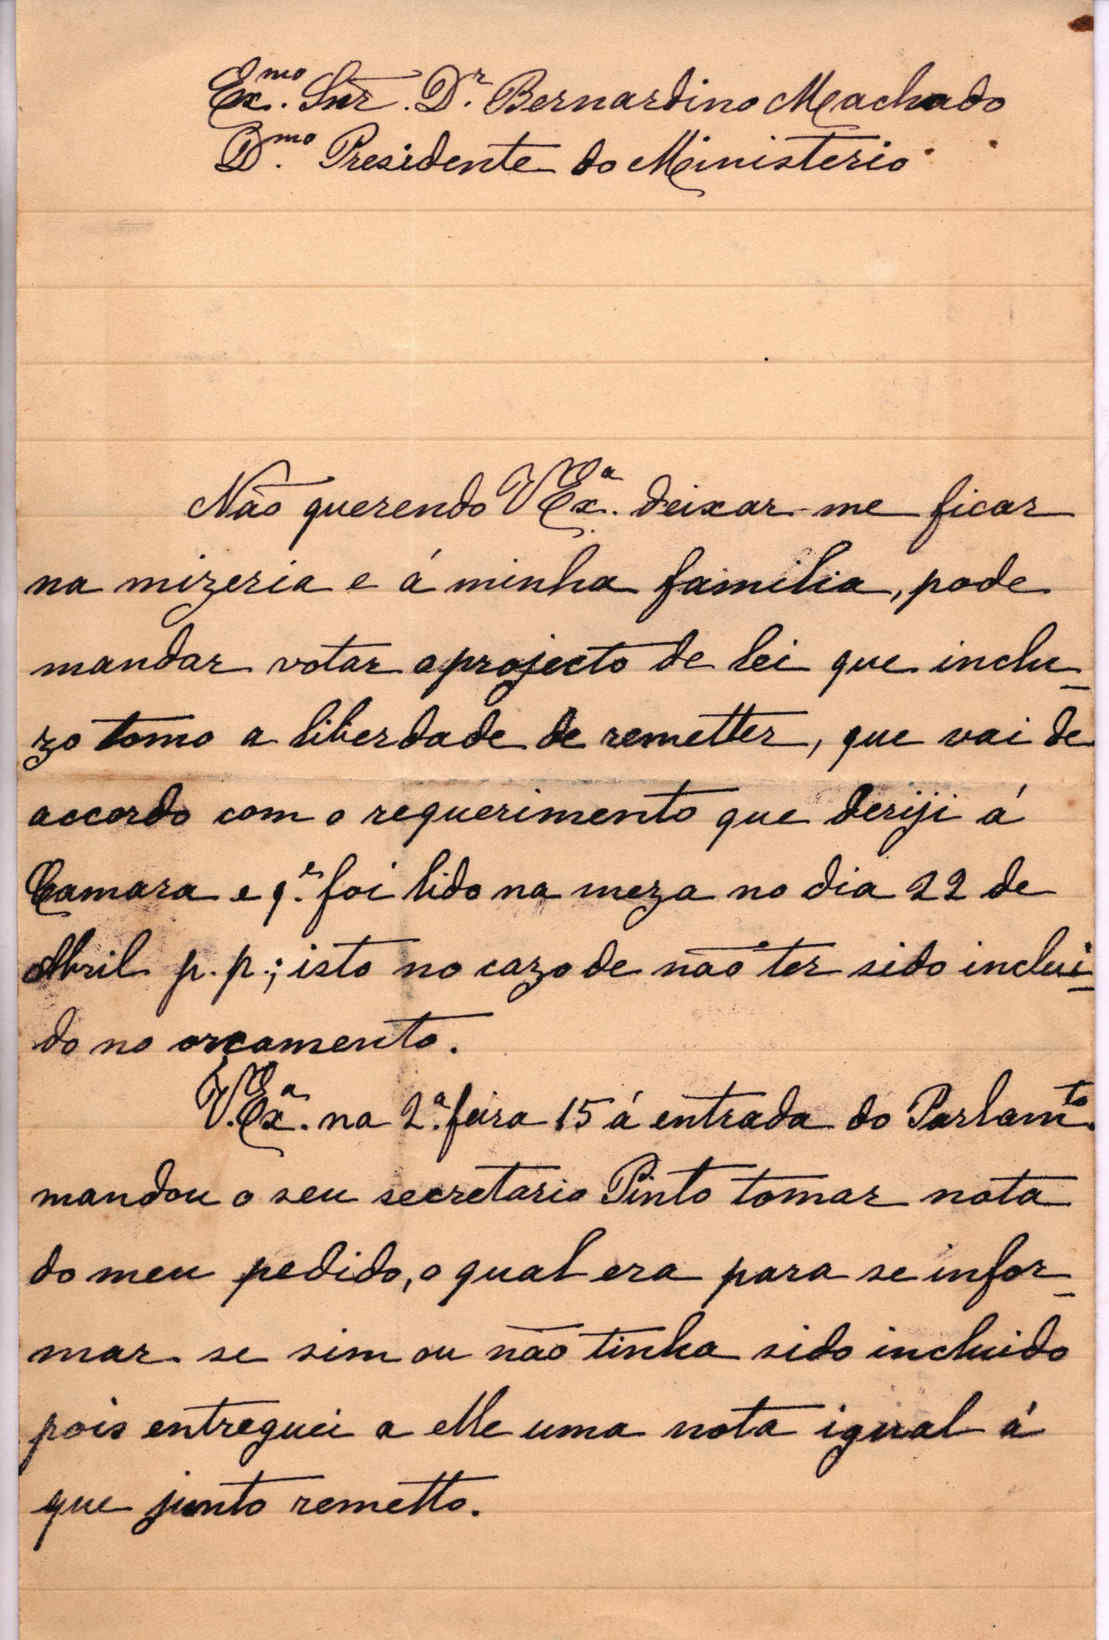 Ex.mo Snr. D.r Bernardino Machado
D.mo Presidente do Ministerio
Não querendo V Ex.a deixar-me ficar
na mizeria e á minha familia, pode
mandar votar o projecto de lei que inclu-
zo tomo a liberdade de remetter, que vai de
accordo com o requerimento que deriji á
Camara e q.e foi lido na meza no dia 22 de
Abril p. p.; isto no cazo de não ter sido inclui-
do no orçamento.
V. Ex.a na 2.a feira 15 á entrada do Parlam.to
mandou o seu secretario Pinto tomar nota
do meu pedido, o qual era para se infor-
mar se sim ou não tinha sido incluido
pois entreguei a elle uma nota igual á
que junto remetto.